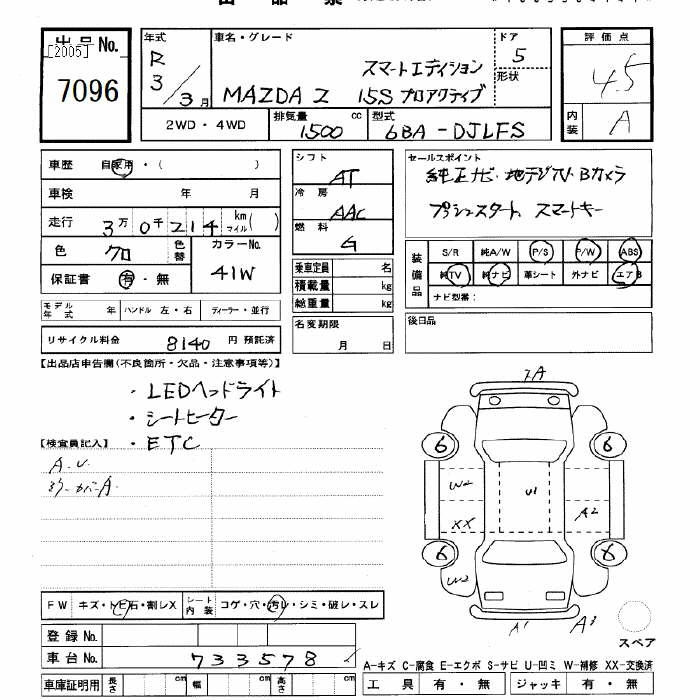 出品No. [2005]
7096
年式 R 3/3月
車名・グレード
スマートエディション
MAZDA 2 15S プロアクティブ
ドア 5
形状
評価点
4.5
内装 A
2WD・4WD
排気量 1500 cc
型式 6BA-DJLFS
車歴 自家用・( )
車検 年 月
走行 3万0千214 km マイル( )
色 クロ
色替
カラーNo. 41W
保証書 有・無
シフト AT
冷房 AAC
燃料 G
乗車定員 名
積載量 kg
総重量 kg
名変期限
月 日
セールスポイント
純正ナビ・地デジTV・Bカメラ
プッシュスタート、スマートキー
装備品
S/R 純A/W P/S P/W ABS
純TV 純ナビ 革シート 外ナビ エアB
ナビ型番:
後日品
モデル年式 年 ハンドル 左・右 ディーラー・並行
リサイクル料金 8140 円 預託済
【出品店申告欄(不良箇所・欠品・注意事項等)】
・LEDヘッドライト
・シートヒーター
・ETC
【検査員記入】
A.U
A
6 6
W2 U1 A2
XX
6 6
W2
A1 A3
スペア
FW キズ・トビ石・割レX シート内装 コゲ・穴・汚レ・シミ・破レ・スレ
登録No.
車台No. 733578
車庫証明用 長さ cm 幅 cm 高さ cm
A-キズ C-腐食 E-エクボ S-サビ U-凹ミ W-補修 XX-交換済
工具 有・無 ジャッキ 有・無